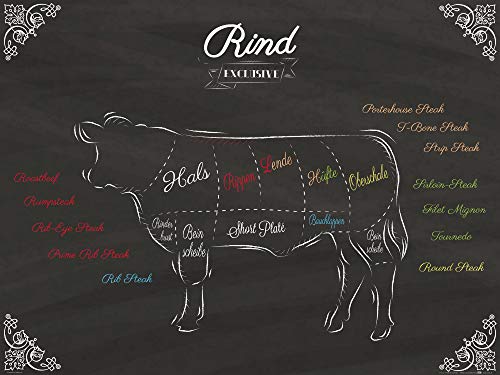 Rind
EXCLUSIVE
Porterhouse Steak
T-Bone Steak
Strip Steak
Hals
Rippen
Lende
Hüfte
Oberschale
Roastbeef
Rumpsteak
Rib-Eye Steak
Prime Rib Steak
Rib Steak
Rinder
brust
Bein
scheibe
Short Plate
Bauchlappen
Bein
scheibe
Sirloin-Steak
Filet Mignon
Tournedo
Round Steak